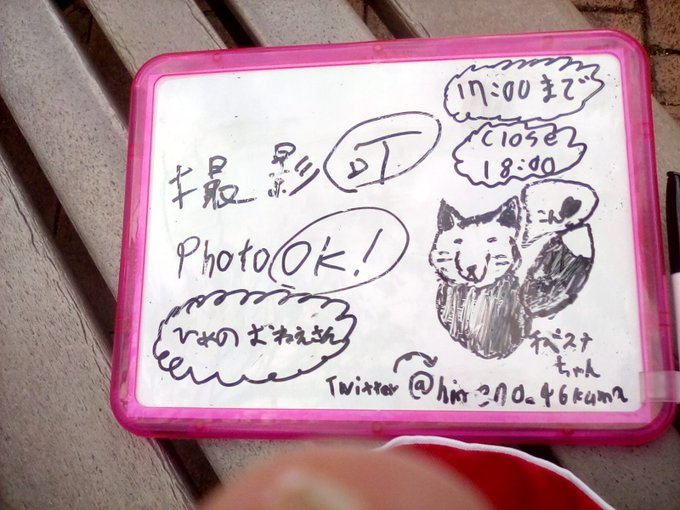 17:00まで
close
18:00
撮影可
Photo OK!
こん♥
ひめのおねえさん
ちゃん
Twitter